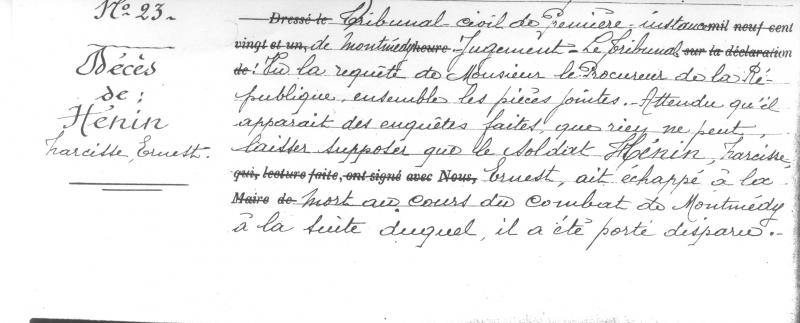 N° 23.
Décès
de:
Hénin
Narcisse, Ernest.
Dressé le Tribunal civil de Première instance mil neuf cent
vingt et un, de Montmédy heure Jugement = Le Tribunal, sur la déclaration
de: Vu la requête de Monsieur le Procureur de la Ré-
publique, ensemble les pièces jointes. Attendu qu'il
apparait des enquêtes faites, que rien ne peut,
laisser supposer que le soldat Hénin, Narcisse,
qui, lecture faite, ont signé avec Nous, Ernest, ait échappé à la
Maire de mort au cours du combat de Montmédy
à la suite duquel, il a été porté disparu.-